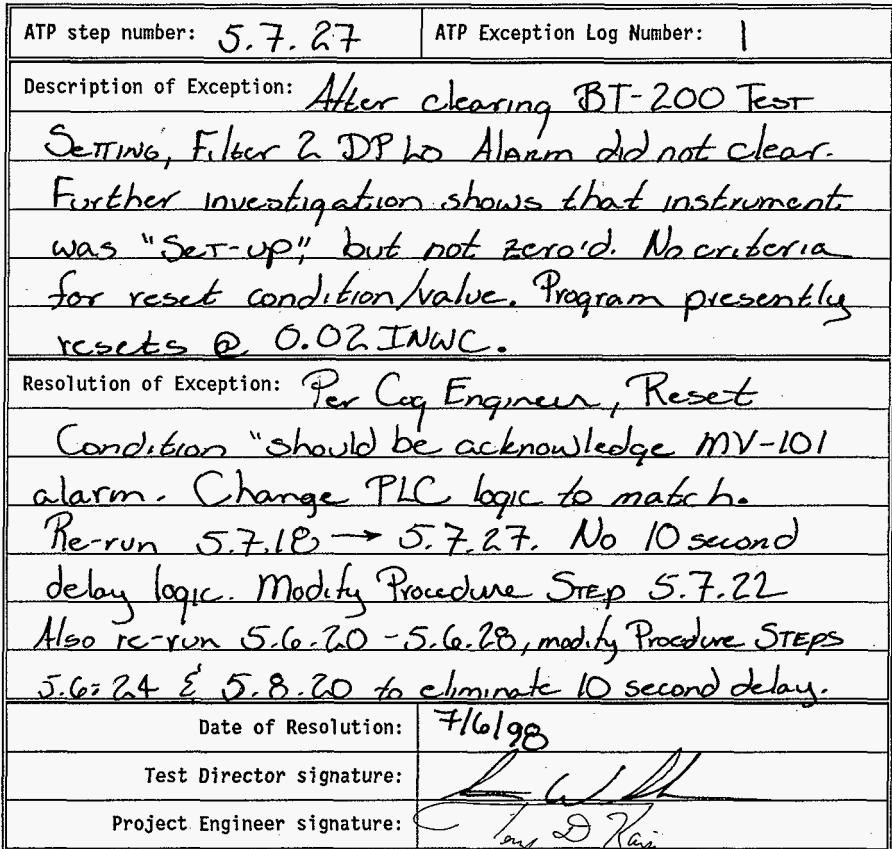 ATP step number: 5.7.27 ATP Exception Log Number: 1
Description of Exception: After clearing BT-200 Test
Setting, Filter 2 DP Lo Alarm did not clear.
Further investigation shows that instrument
was "Set-up", but not zero'd. No criteria
for reset condition/value. Program presently
resets @ 0.02 INWC.
Resolution of Exception: Per Cog Engineer, Reset
Condition "should be acknowledge MV-101
alarm. Change PLC logic to match.
Re-run 5.7.18 → 5.7.27. No 10 second
delay logic. Modify Procedure Step 5.7.22
Also re-run 5.6.20 - 5.6.28, modify Procedure STEPS
5.6.24 & 5.8.20 to eliminate 10 second delay.
Date of Resolution: 7/6/98
Test Director signature:
Project Engineer signature: